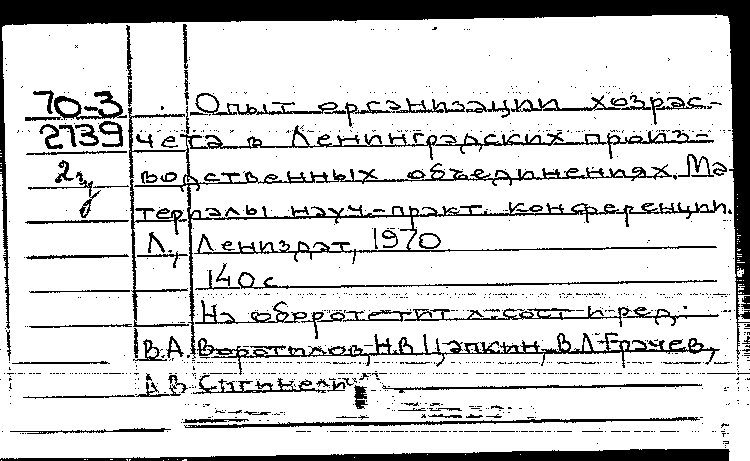 70-3 Опыт организации хозрас-
2739 чета в Ленинградских произ-
водственных объединениях. Ма-
териалы науч.-практ. конференции.
Л., Лениздат, 1970
140 с
На обороте тит. л. сост. и ред.:
В.А. Воротилов, Н.В. Цапкин, В.Л. Грачев,
А.В.